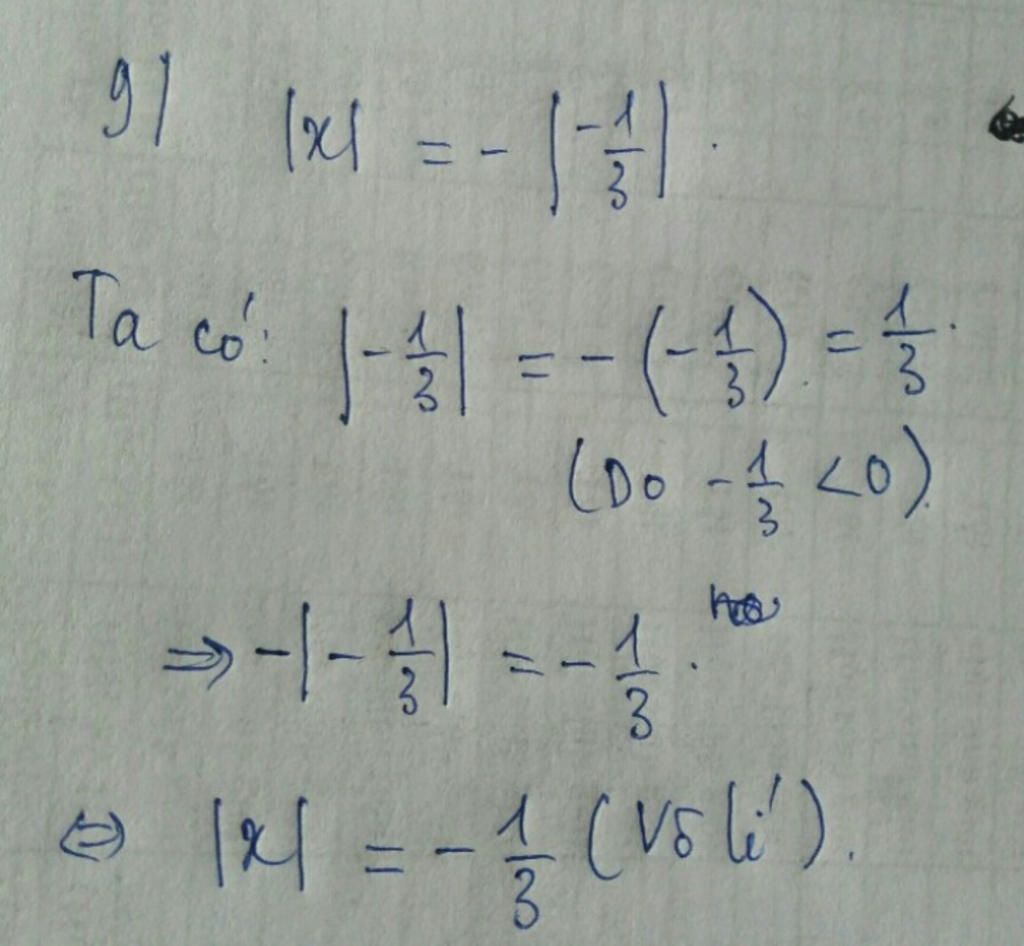 g) |x| = - |-1/3|.
Ta có: |-1/3| = - (-1/3). = 1/3.
(Do -1/3 < 0).
⇒ -|-1/3| = -1/3.
⇔ |x| = -1/3 (Vô lí).